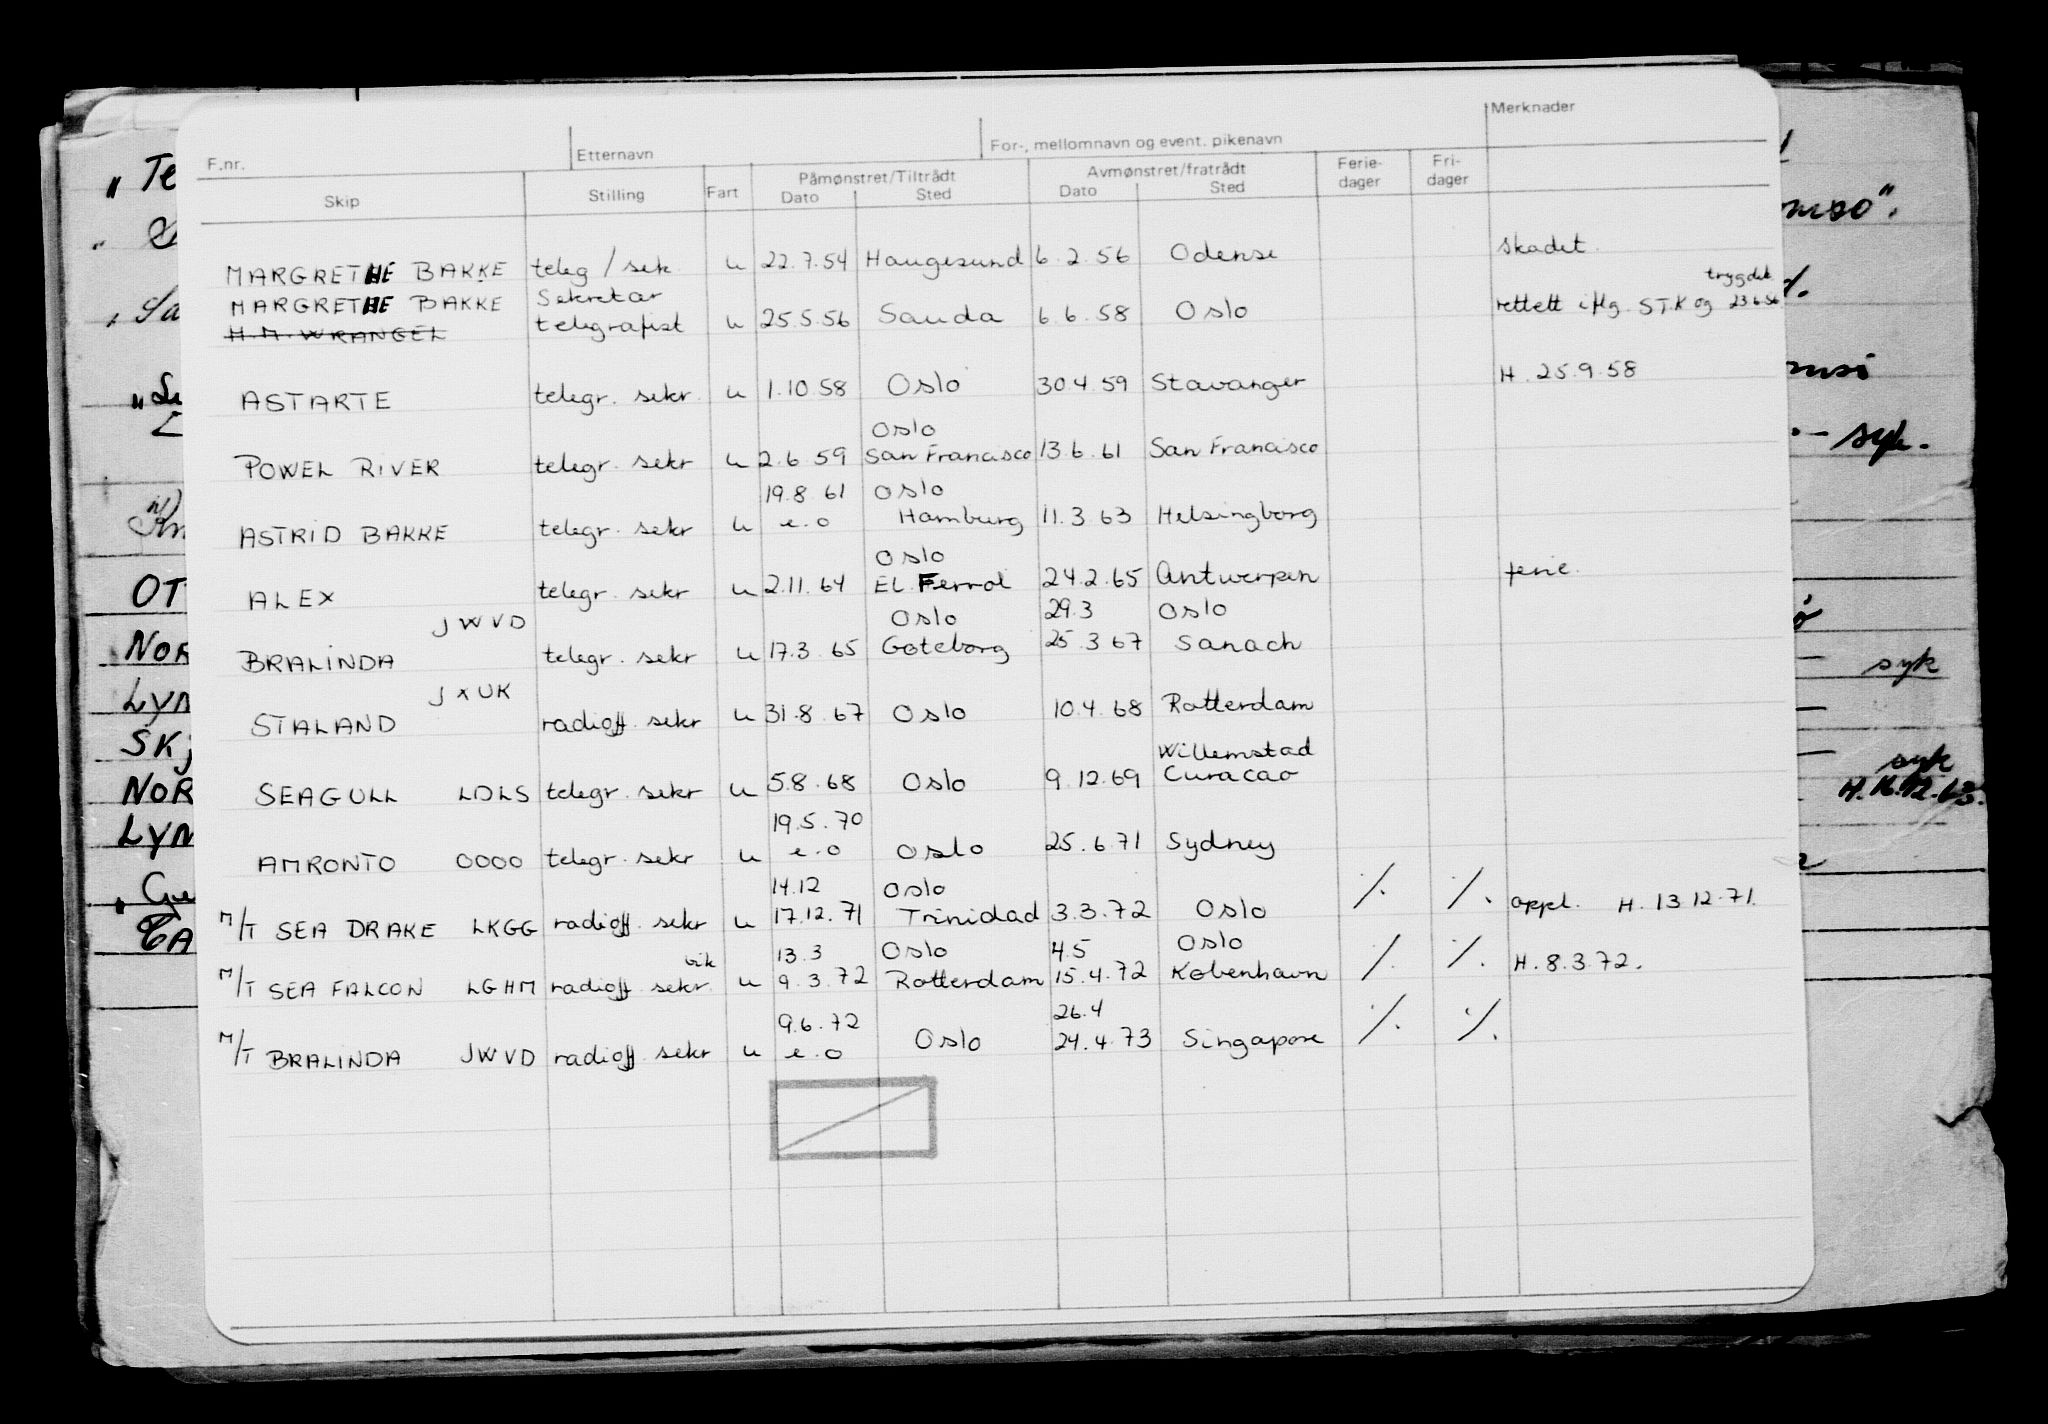 Merknader
F.nr. Etternavn For-, mellomnavn og event. pikenavn
Skip Stilling Fart Påmønstret/Tiltrådt Avmønstret/fratrådt Ferie- Fri-
Dato Sted Dato Sted dager dager
MARGRETHE BAKKE teleg / sek. u 22.7.54 Haugesund 6.2.56 Odense skadet.
MARGRETHE BAKKE Sekretær trygdek
H.M. WRANGEL telegrafist u 25.5.56 Sauda 6.6.58 Oslo rettett iflg. STK og 23.6.56
ASTARTE telegr. sekr. u 1.10.58 Oslo 30.4.59 Stavanger H. 25.9.58
Oslo
POWEL RIVER telegr. sekr u 2.6.59 San Francisco 13.6.61 San Francisco
19.8.61 Oslo
ASTRID BAKKE telegr. sekr u e.o Hamburg 11.3.63 Helsingborg
Oslo
ALEX telegr. sekr u 2.11.64 EL Ferrol 24.2.65 Antwerpen ferie.
JWVD Oslo 29.3 Oslo
BRALINDA telegr. sekr u 17.3.65 Gøteborg 25.3.67 Sanach
JXUK
STALAND radioff. sekr u 31.8.67 Oslo 10.4.68 Rotterdam
Willemstad
SEAGULL LDLS telegr. sekr u 5.8.68 Oslo 9.12.69 Curacao
19.5.70
AMRONTO OOOO telegr. sekr u e.o Oslo 25.6.71 Sydney
14.12 Oslo
M/T SEA DRAKE LKGG radioff. sekr u 17.12.71 Trinidad 3.3.72 Oslo ./. ./. oppl. H. 13.12.71.
vik 13.3 Oslo 4.5 Oslo
M/T SEA FALCON LGHM radioff. sekr. u 9.3.72 Rotterdam 15.4.72 København ./. ./. H. 8.3.72.
9.6.72 26.4
M/T BRALINDA JWVD radioff. sekr u e.o Oslo 24.4.73 Singapore ./. ./.
syk.
syk
syk